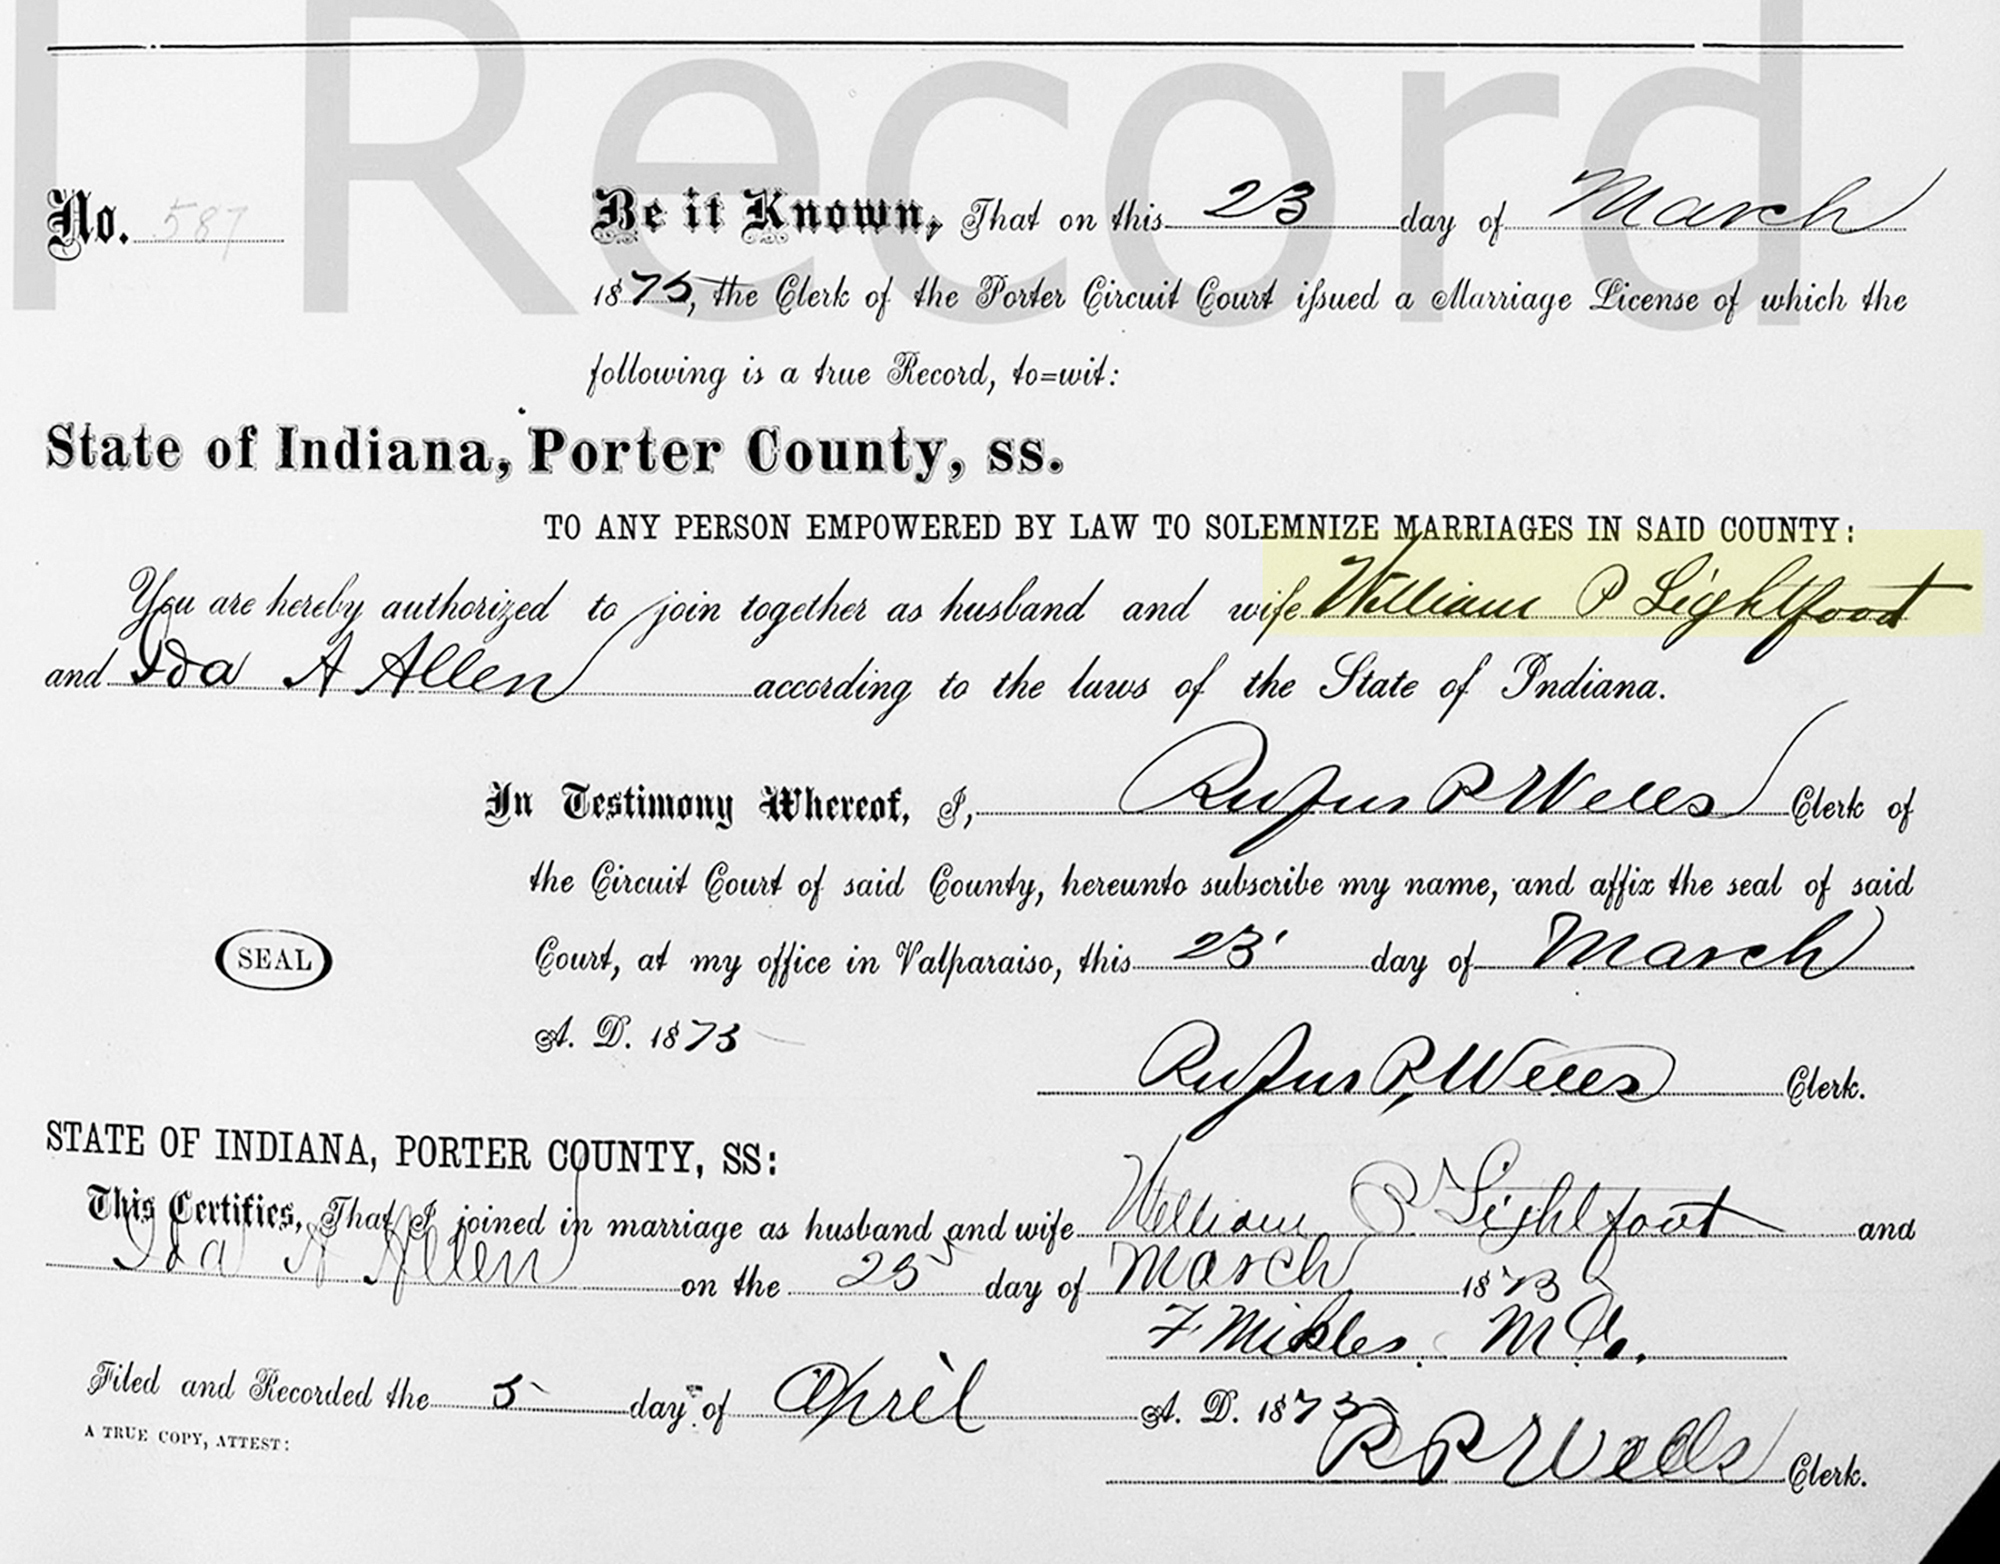 l Record
No. 587 Be it Known, That on this 23 day of March
1875, the Clerk of the Porter Circuit Court issued a Marriage License of which the
following is a true Record, to=wit:
State of Indiana, Porter County, ss.
TO ANY PERSON EMPOWERED BY LAW TO SOLEMNIZE MARRIAGES IN SAID COUNTY:
You are hereby authorized to join together as husband and wife William P Lightfoot
and Ida A Allen according to the laws of the State of Indiana.
In Testimony Whereof, I, Rufus P Wells Clerk of
the Circuit Court of said County, hereunto subscribe my name, and affix the seal of said
SEAL Court, at my office in Valparaiso, this 23 day of March
A. D. 1873
Rufus P, Wells Clerk.
STATE OF INDIANA, PORTER COUNTY, SS:
This Certifies, That I joined in marriage as husband and wife William P Lightfoot and
Ida A Allen on the 25 day of March 1873
F. Mikles M
Filed and Recorded the 5 day of April A. D. 1873
A TRUE COPY, ATTEST:
R P Wells Clerk.